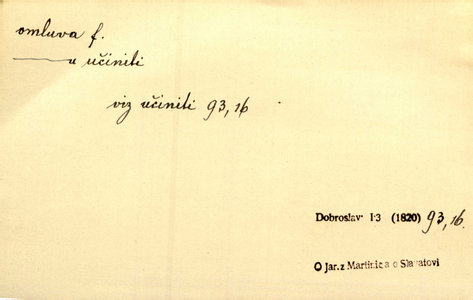 omluva f.
—— u učiniti
viz učiniti 93,16
Dobroslav I·3 (1820) 93,16.
O Jar. z Martinic a o Slavatovi